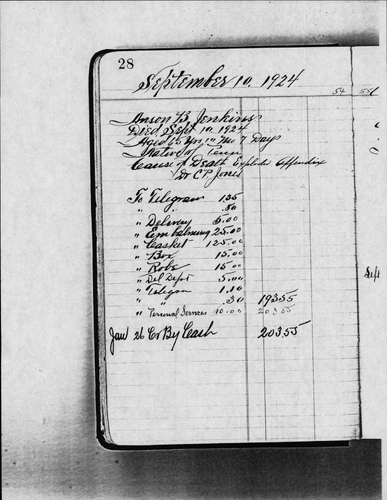 28
September 10, 1924
54 55
Anson B. Jenkins
Died Sept 10, 1924
Aged 65 Yrs, 7 Days
Native of Tenn
Cause of Death Explode Appendix
Dr C P. Jones
To Telegram 1.35
" " .50
" Delivery 5.00
" Embalming 25.00
" Casket 125.00
" Box 15.00
" Robe 15.00
" Del Depot 5.00
" Telegram 1.10
" " .30 193 55
" Personal Services 10.00 203 55
Jan 26 Cr By Cash 203 55
Sept